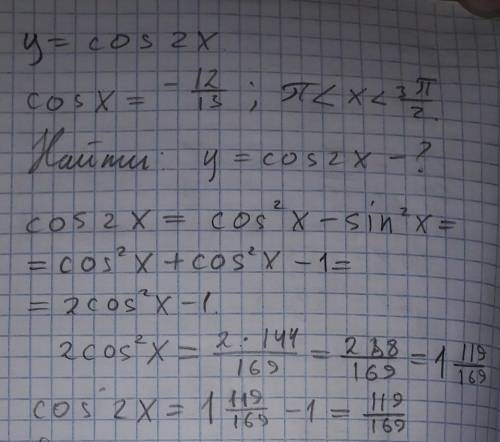 y = cos 2x
cos x = -12/13 ; π < x < 3π/2.
Найти: y = cos 2x - ?
cos 2x = cos²x - sin²x =
= cos²x + cos²x - 1 =
= 2cos²x - 1.
2cos²x = 2·144/169 = 288/169 = 1 119/169
cos 2x = 1 119/169 - 1 = 119/169